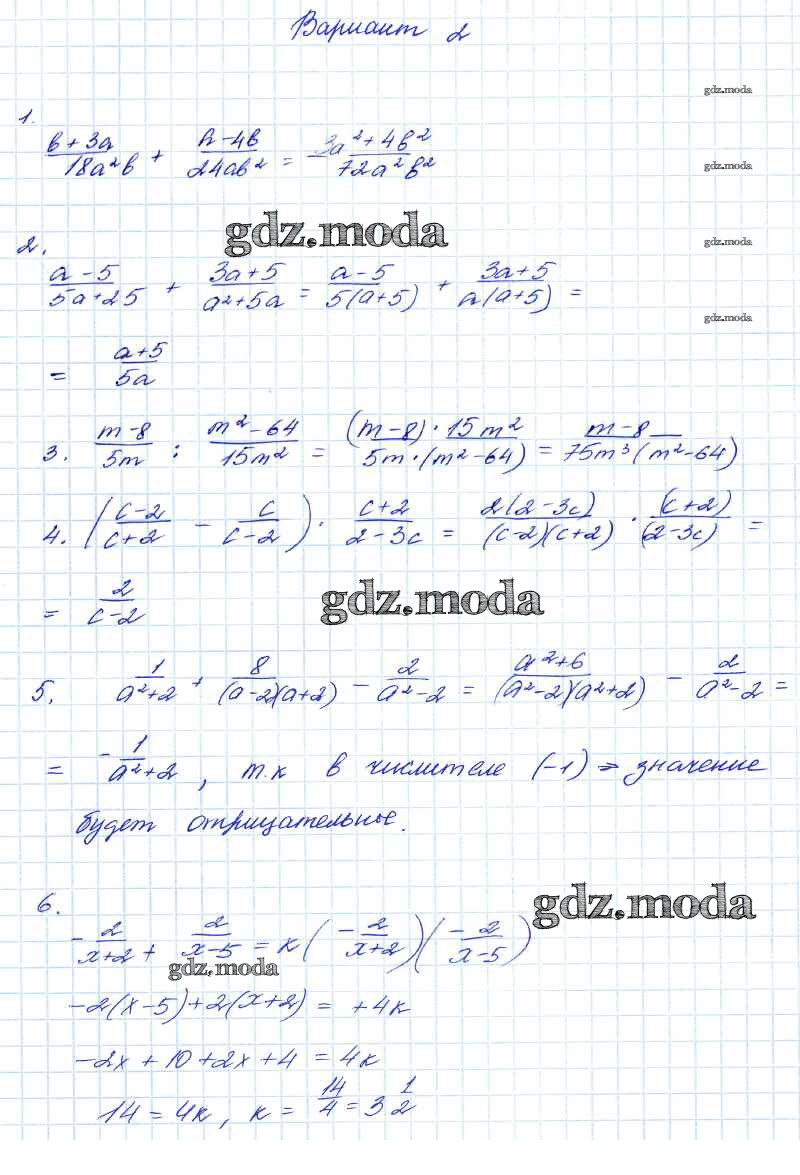 Вариант 2
gdz.moda
1.
(в + 3a)/(18a²в) + (a - 4в)/(24aв²) = (3a² + 4в²)/(72a²в²)
gdz.moda
2.
gdz.moda
gdz.moda
(a - 5)/(5a + 25) + (3a + 5)/(a² + 5a) = (a - 5)/(5(a + 5)) + (3a + 5)/(a(a + 5)) =
gdz.moda
= (a + 5)/(5a)
3. (m - 8)/(5m) : (m² - 64)/(15m²) = ((m - 8) · 15m²)/(5m · (m² - 64)) = (m - 8)/(75m³(m² - 64))
4. ((c - 2)/(c + 2) - c/(c - 2)) · (c + 2)/(2 - 3c) = (2(2 - 3c))/((c - 2)(c + 2)) · (c + 2)/(2 - 3c) =
= 2/(c - 2)
gdz.moda
5. 1/(a² + 2) + 8/((a - 2)(a + 2)) - 2/(a² - 2) = (a² + 6)/((a² - 2)(a² + 2)) - 2/(a² - 2) =
= -1/(a² + 2), т.к в числителе (-1) ⇒ значение
будет отрицательные.
6.
gdz.moda
-2/(x + 2) + 2/(x - 5) = к(-2/(x + 2))(-2/(x - 5))
gdz.moda
-2(x - 5) + 2(x + 2) = +4к
-2x + 10 + 2x + 4 = 4к
14 = 4к, к = 14/4 = 3 1/2